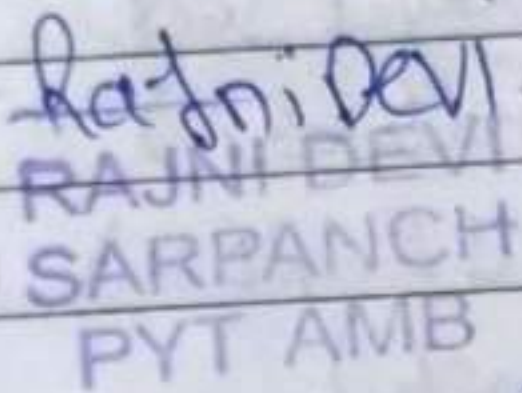 Rajni Devi
RAJNI DEVI
SARPANCH
PYT AMB